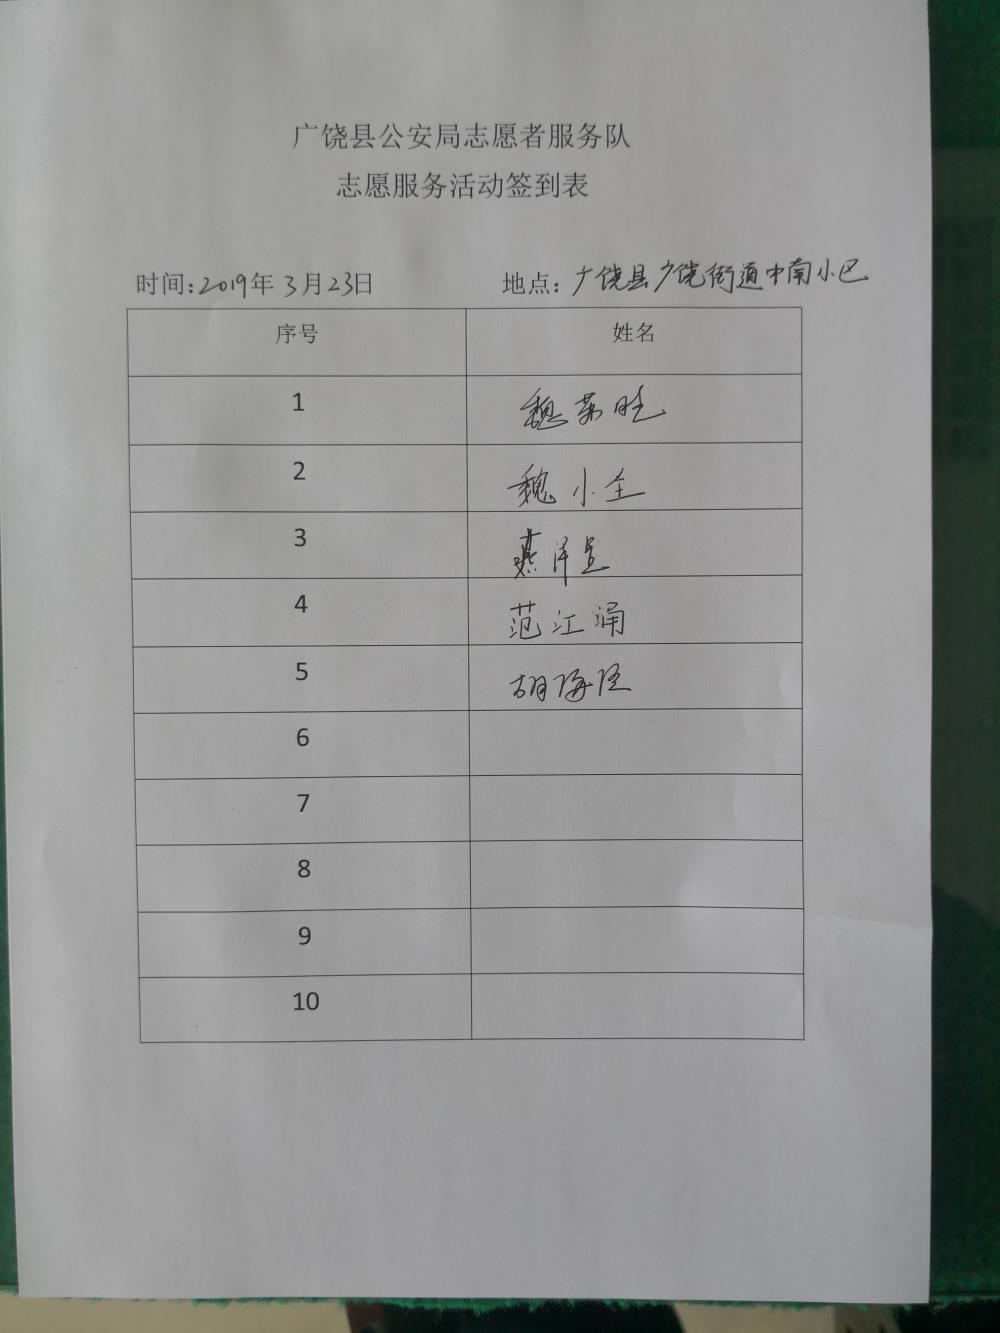 广饶县公安局志愿者服务队
志愿服务活动签到表
时间:2019年3月23日 地点:广饶县广饶街道中南小区
序号 姓名
1 魏
2 魏小全
3 燕泽
4 范江涌
5 胡海
6
7
8
9
10